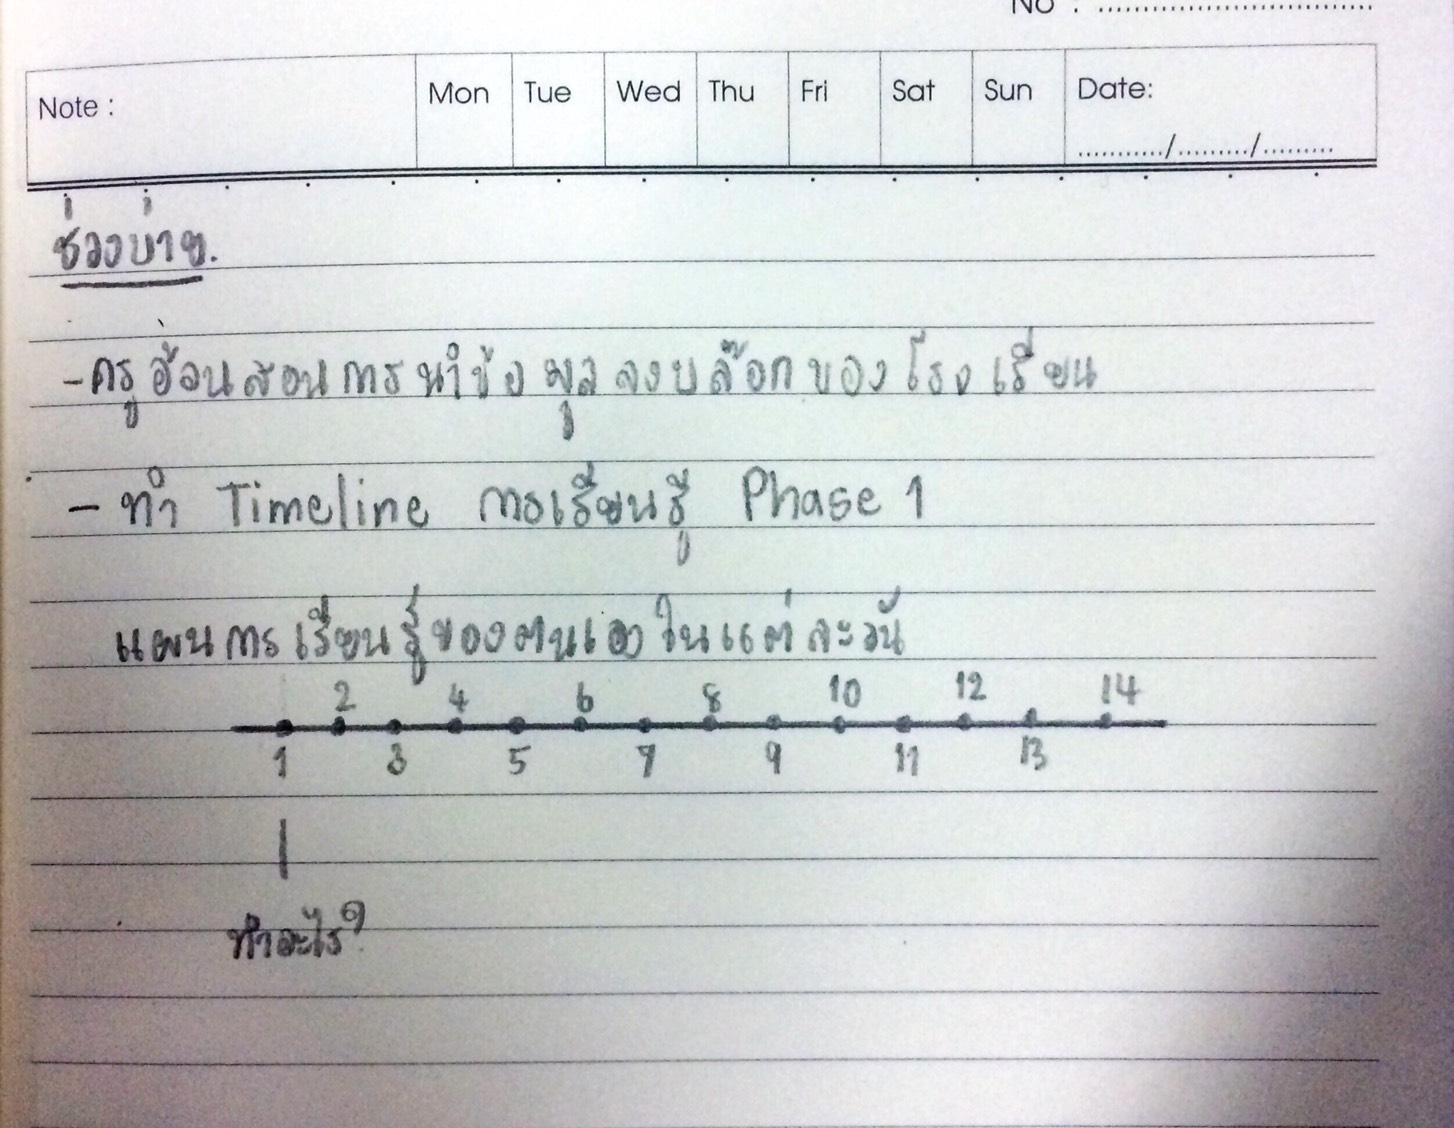 No : ..............................
Note : Mon Tue Wed Thu Fri Sat Sun Date:
.........../........./.........
ช่วงบ่าย.
- ครูอ้อนสอนการนำข้อมูลลงบล๊อกของโรงเรียน
- ทำ Timeline การเรียนรู้ Phase 1
แผนการเรียนรู้ของตนเองในแต่ละวัน
2 4 6 8 10 12 14
1 3 5 7 9 11 13
ทำอะไร?